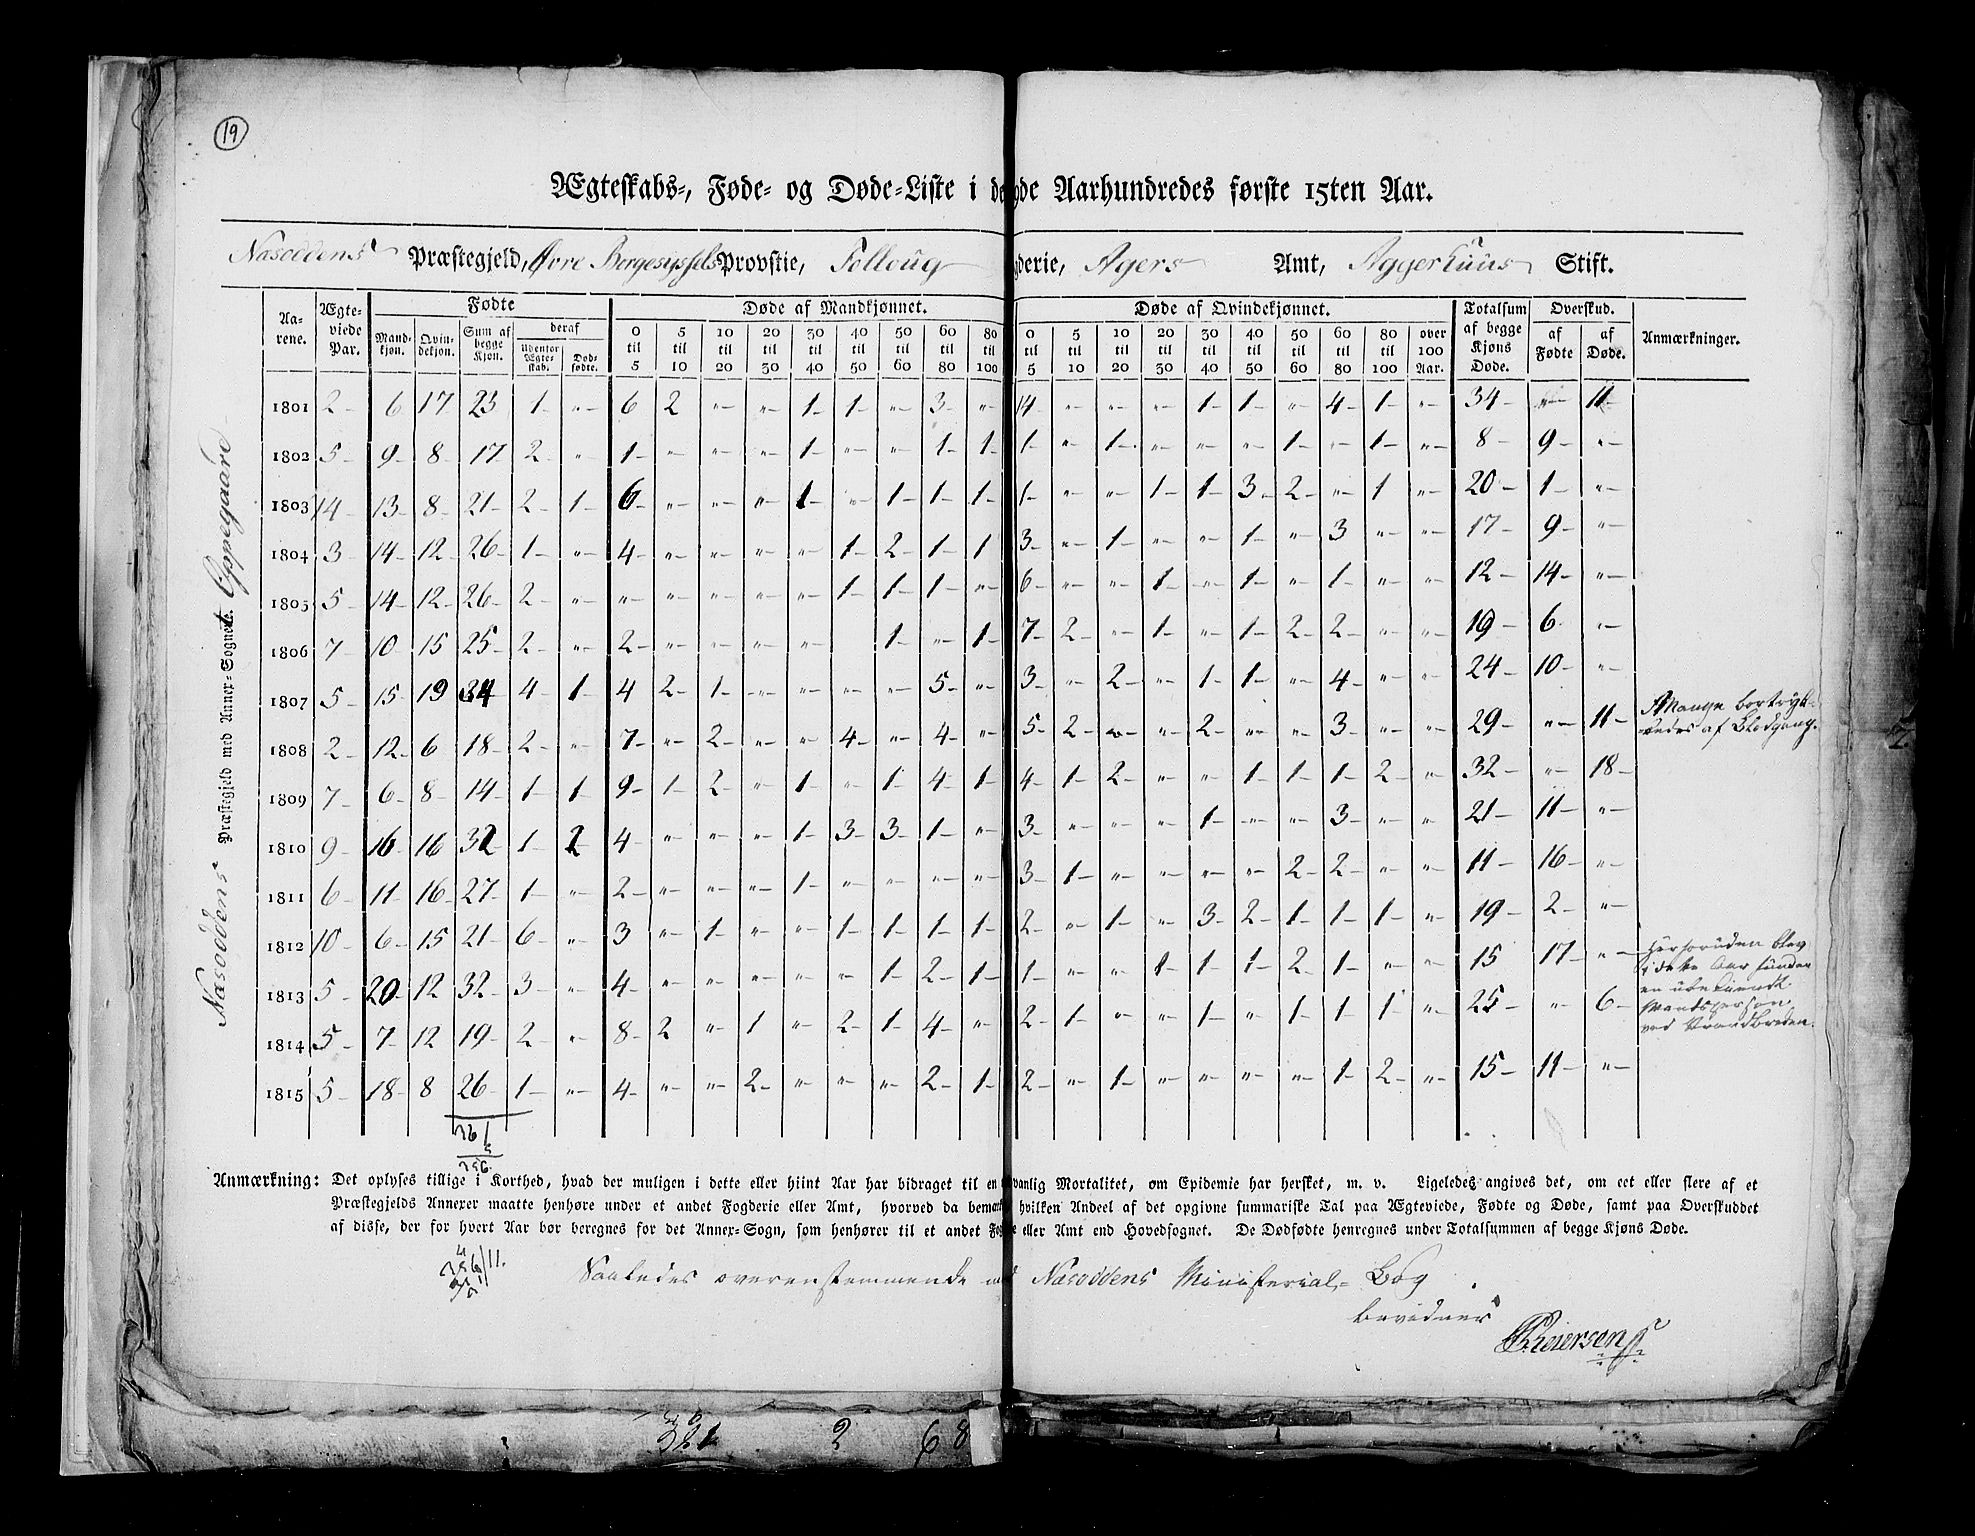 19
Ægteskabs-, Føde- og Døde-Liste i de gde Aarhundredes første 15ten Aar.
Næsoddens Præstegjeld, Øvre Borgesyssels Provstie, Folloug gderie, Agers Amt, Aggerhuus Stift.
Aarene. Ægteviede Par. Fødte Døde af Mandkjønnet. Døde af Qvindekjønnet. Totalsum af begge Kjøns Døde. Overskud. Anmærkninger.
Mandkjøn. Qvindekjøn. Sum af begge Kjøn. deraf Udenfor Ægteskab. Dødfødte. 0 til 5 5 til 10 10 til 20 20 til 30 30 til 40 40 til 50 50 til 60 60 til 80 80 til 100 0 til 5 5 til 10 10 til 20 20 til 30 30 til 40 40 til 50 50 til 60 60 til 80 80 til 100 over 100 Aar. af Fødte af Døde.
Næsoddens Præstegjeld med Annex-Sognet. Oppegaard
1801 2 6 17 23 1 " 6 2 " " 1 1 " 3 " 14 " " " 1 1 " 4 1 " 34 " 11
1802 5 9 8 17 2 " 1 " " " 1 " " 1 1 1 " 1 " " " 1 " 1 " 8 9 "
1803 14 13 8 21 2 1 6 " " " 1 " 1 1 1 1 " " 1 1 3 2 " 1 " 20 1 "
1804 3 14 12 26 1 " 4 " " " " 1 2 1 1 3 " 1 " " 1 " 3 " " 17 9 "
1805 5 14 12 26 2 " " " " " " 1 1 1 " 6 " " 1 " 1 " 1 " " 12 14 "
1806 7 10 15 25 2 " 2 " " " " 1 " 1 7 2 " 1 " 1 2 2 " " 19 6 "
1807 5 15 19 34 4 1 4 2 1 " " " " 5 " 3 " 2 " 1 1 " 4 " " 24 10 "
1808 2 12 6 18 2 " 7 " 2 " " 4 " 4 " 5 2 " " 2 " " 3 " " 29 " 11 Mange bortrykkedes af Blodgang.
1809 7 6 8 14 1 1 9 1 2 " 1 " 1 4 1 4 1 2 " " 1 1 1 2 " 32 " 18
1810 9 16 16 32 1 2 4 " " " 1 3 3 1 " 3 " " " 1 " " 3 " " 21 11 "
1811 6 11 16 27 1 " 2 " " " 1 " " " " 3 1 " " " " 2 2 " " 11 16 "
1812 10 6 15 21 6 " 3 " 1 " " 1 1 1 1 2 " 1 " 3 2 1 1 1 " 19 2 "
1813 5 20 12 32 3 " 4 " " " " " 1 2 1 1 " " 1 1 1 2 1 " " 15 17 " Herforuden blev
i dette Aar funden
en ubekiendt
Mandsperson
ved Strandbreden.
1814 5 7 12 19 2 " 8 2 " 1 " 2 1 4 " 2 1 " " 1 " 1 1 1 " 25 " 6
1815 5 18 8 26 1 " 4 " " 2 " " " 2 1 2 " 1 " " " " 1 2 " 15 11 "
361
5
356
Anmærkning: Det oplyses tillige i Korthed, hvad der muligen i dette eller hiint Aar har bidraget til en vanlig Mortalitet, om Epidemie har hersket, m. v. Ligeledes angives det, om eet eller flere af et
Præstegjelds Annexer maatte henhøre under et andet Fogderie eller Amt, hvorved da bemær hvilken Andeel af det opgivne summariske Tal paa Ægteviede, Fødte og Døde, samt paa Overskuddet
af disse, der for hvert Aar bør beregnes for det Annex-Sogn, som henhører til et andet Fog eller Amt end Hovedsognet. De Dødfødte henregnes under Totalsummen af begge Kjøns Døde.
356/11.
Saaledes overensstemmende Næsoddens Ministerial-Bog
bevidner
Reiersen
321 2 68